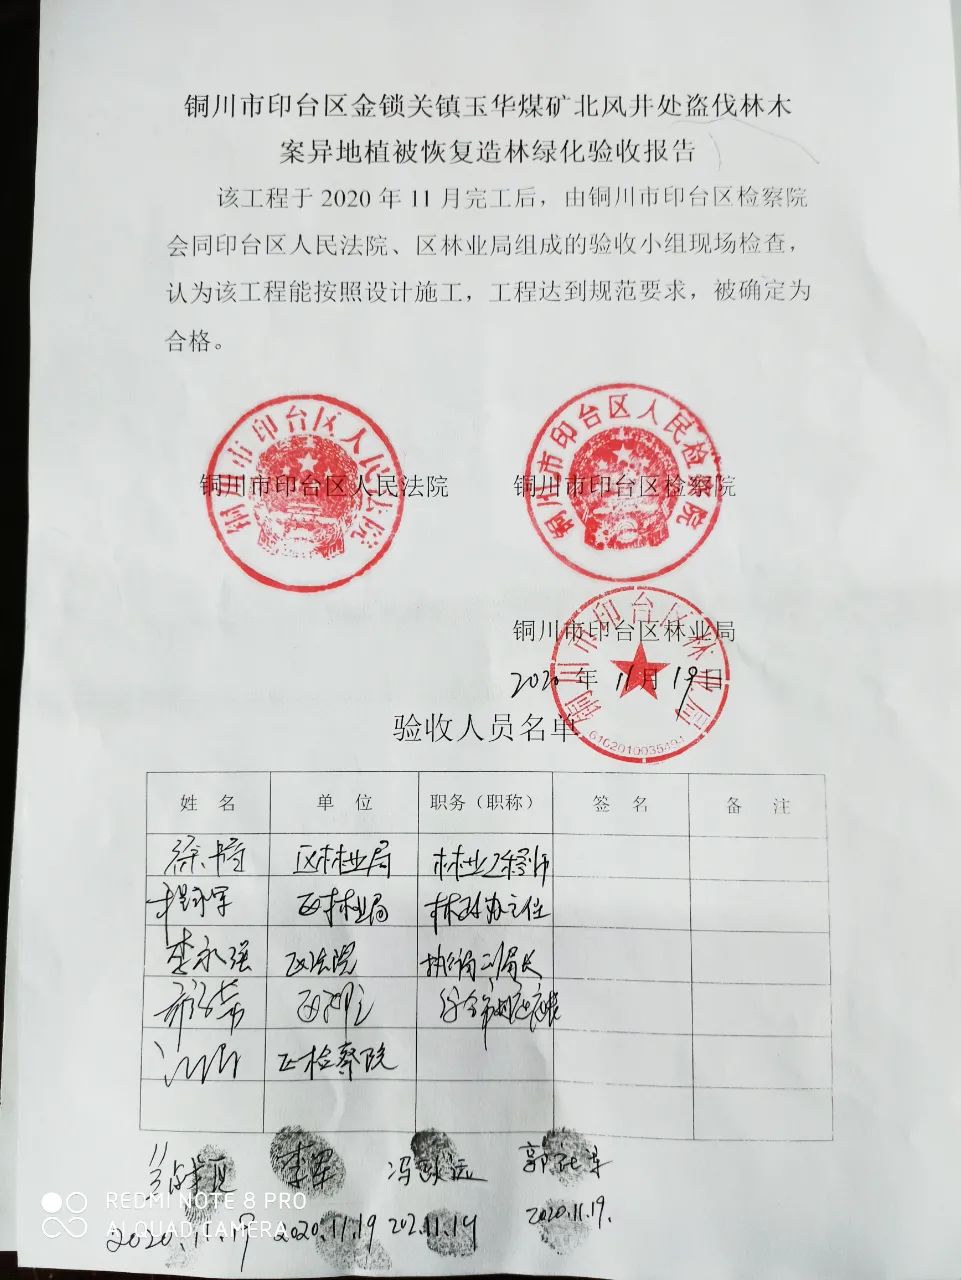 铜川市印台区金锁关镇玉华煤矿北风井处盗伐林木
案异地植被恢复造林绿化验收报告
该工程于 2020 年 11 月完工后，由铜川市印台区检察院
会同印台区人民法院、区林业局组成的验收小组现场检查，
认为该工程能按照设计施工，工程达到规范要求，被确定为
合格。
铜川市印台区人民法院
铜川市印台区人民检察院
铜川市印台区人民法院 铜川市印台区检察院
铜川市印台区林业局
铜川市印台区林业局
2020 年 11 月 19 日
验收人员名单
姓 名 单 位 职务（职称） 签 名 备 注
区林业局 林业工程师
区林业局
李永强 区法院 执行局副局长
区检察院
李军 冯
2020.11.19 2020.11.19 202.11.19 2020.11.19.
REDMI NOTE 8 PRO
AI QUAD CAMERA